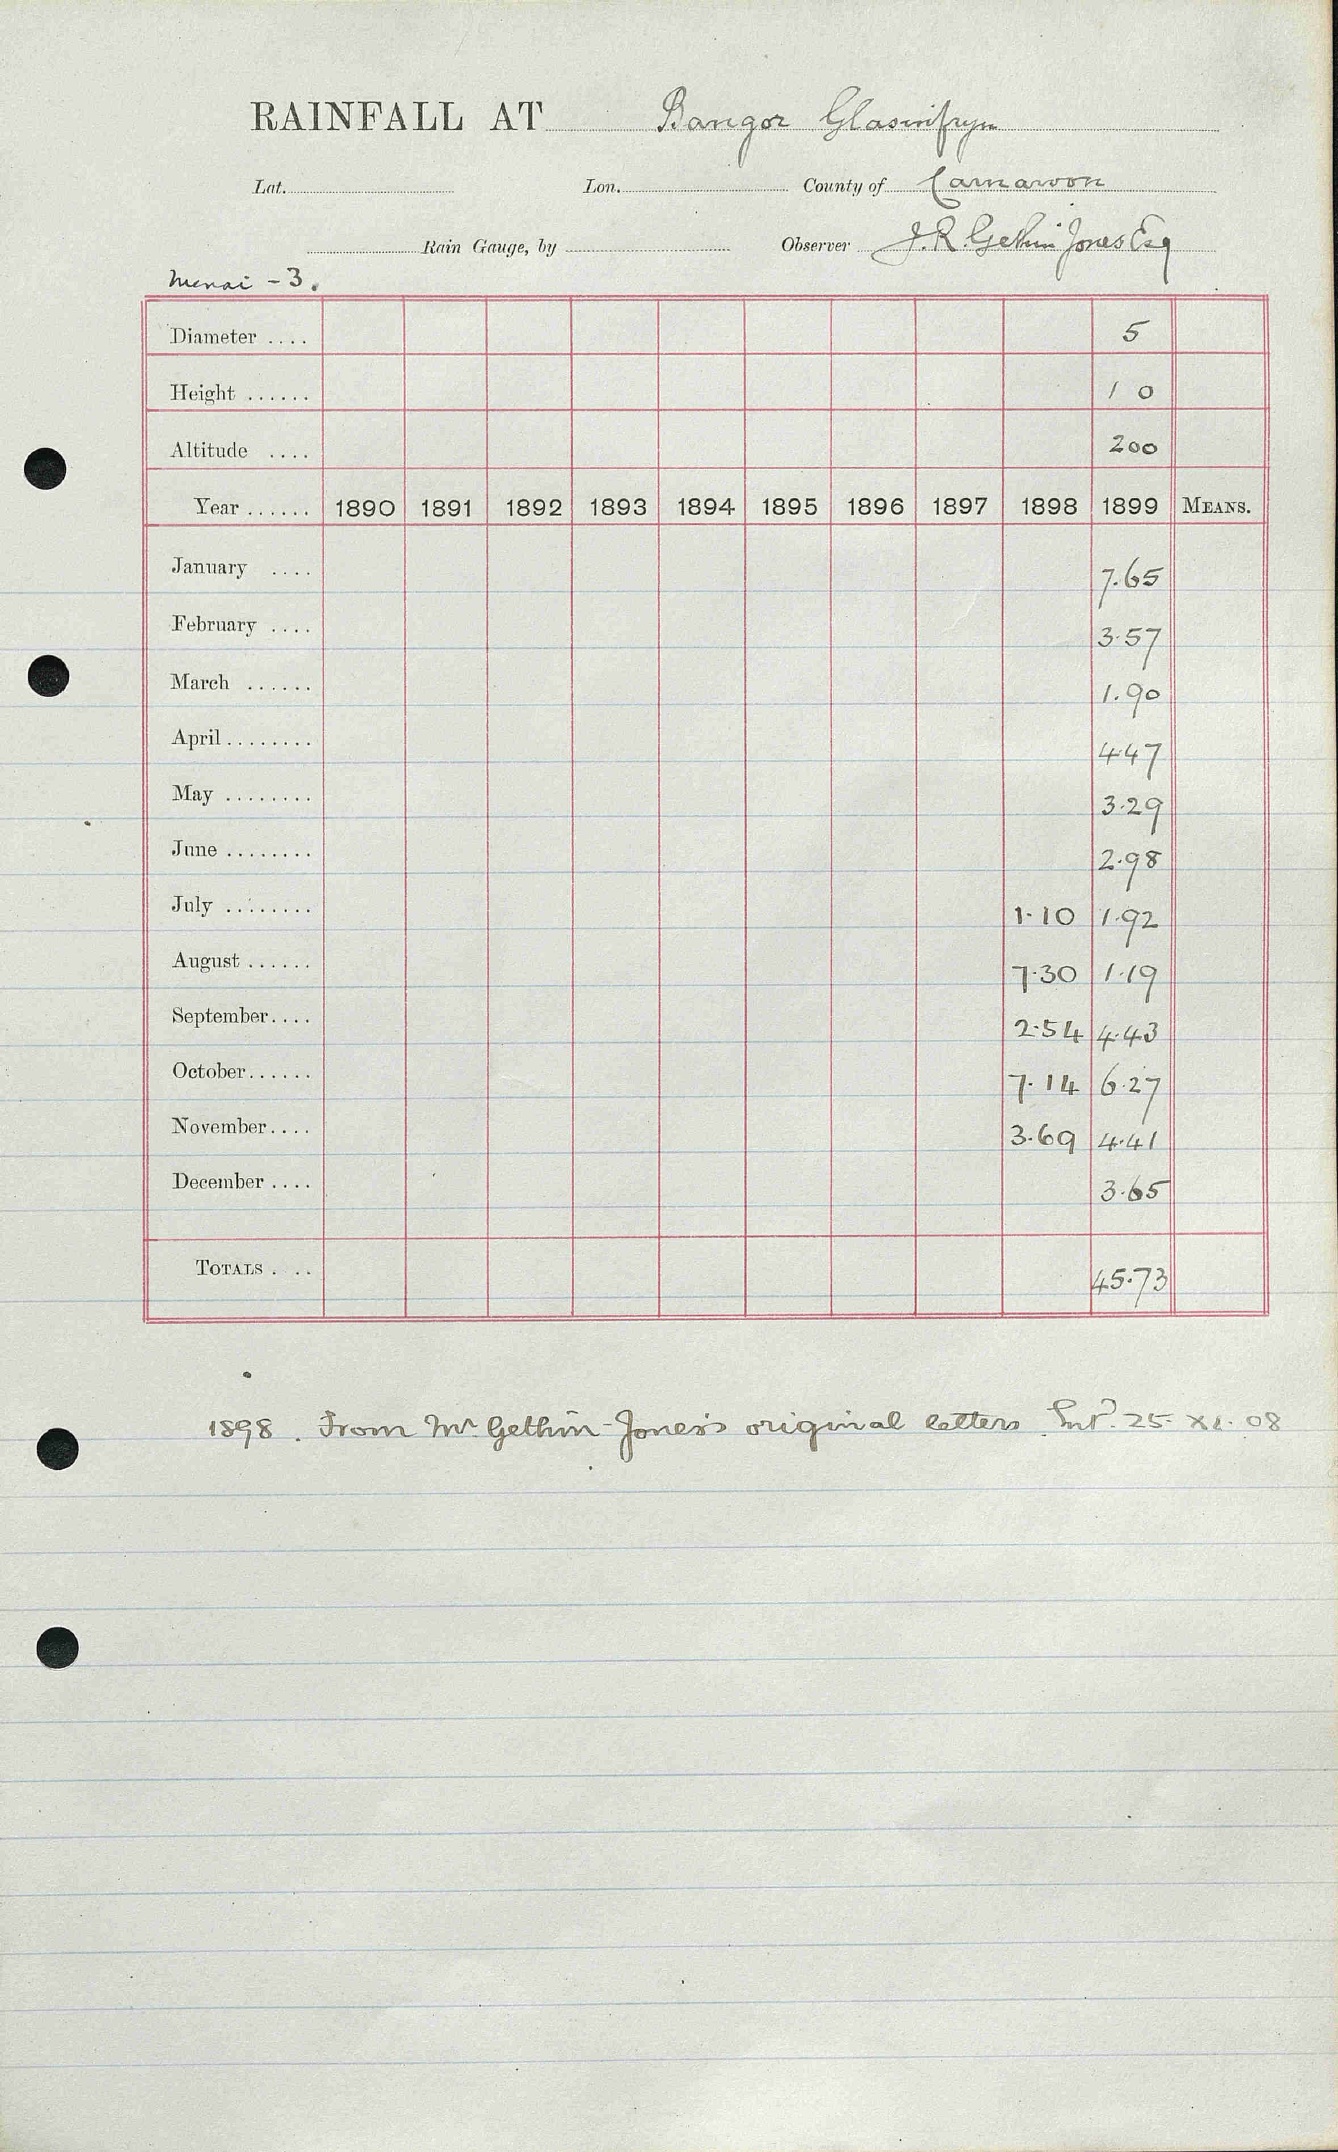 RAINFALL AT Bangor Glasinfryn
Lat. Lon. County of Carnarvon
Rain Gauge, by Observer J. R. Gethin Jones Esq
Menai - 3.
Diameter .... 5
Height ...... 1 0
Altitude .... 200
Year ...... 1890 1891 1892 1893 1894 1895 1896 1897 1898 1899 MEANS.
January .... 7.65
February .... 3.57
March ...... 1.90
April ........ 4.47
May ........ 3.29
June ........ 2.98
July ........ 1.10 1.92
August ...... 7.30 1.19
September.... 2.54 4.43
October...... 7.14 6.27
November.... 3.69 4.41
December .... 3.65
TOTALS . .. 45.73
1898. From Mr Gethin-Jones's original letters 25. XI. 08